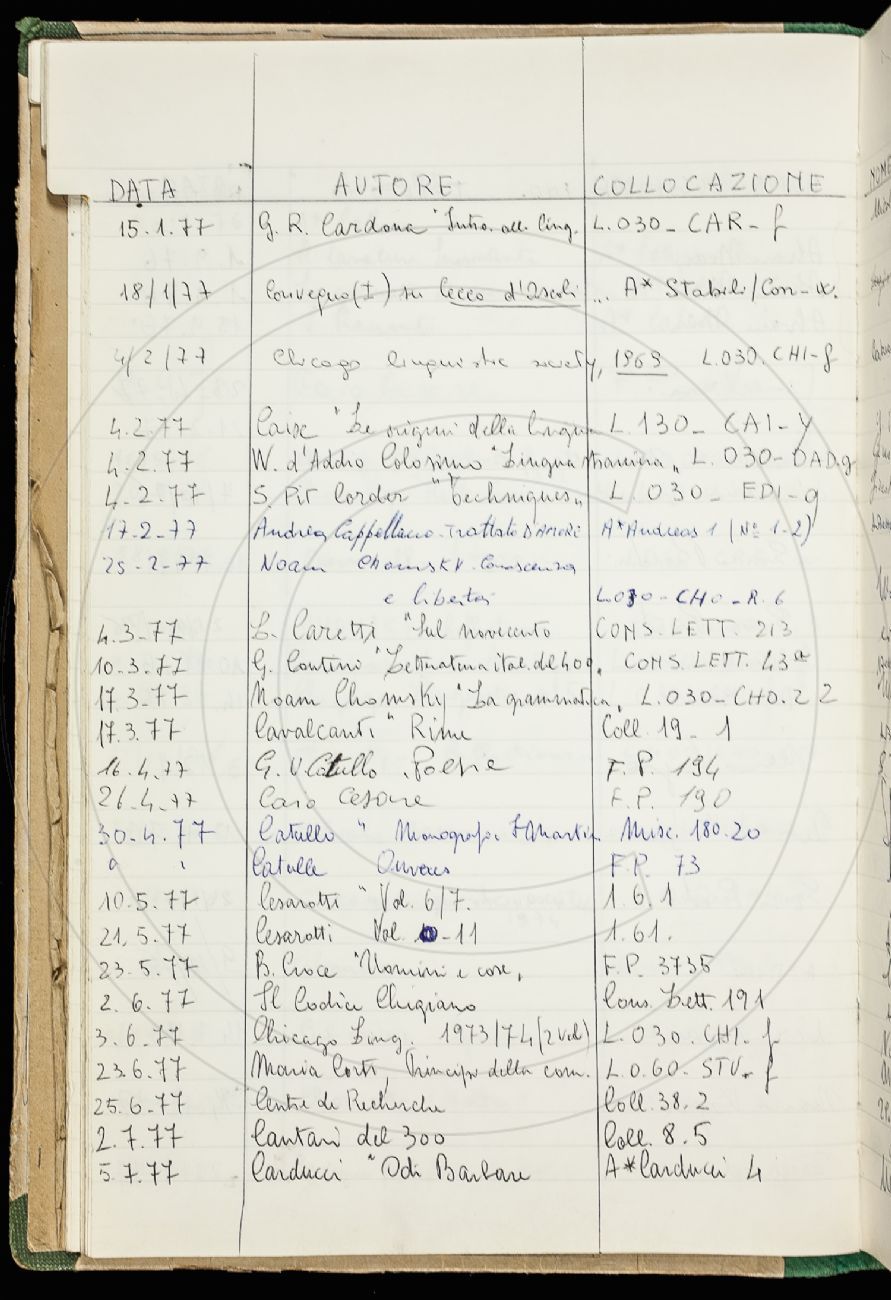 DATA AUTORE COLLOCAZIONE
15.1.77 G. R. Cardona "Intro. alla ling. L.030_ CAR_ f
18/1/77 Convegno (I) su Cecco d'Ascoli ... A* Stabili/Con-
4/2/77 Chicago linguistic society, 1969 L.030. CHI-f
4.2.77 Caix "Le origini della lingua L.130_ CAI-y
4.2.77 W. d'Addio Colosimo "Lingua straniera„ L. 030-DAD.g
4.2.77 S. Pit Corder "Techniques„ L. 030_ EDI-g
17-2-77 Andrea Cappellano-Trattato D'AMORE A*Andreas 1 (Nº 1-2)
25-2-77 Noam Chomsky. Conoscenza
e libertà L030-CHO-R.6
4.3-77 L. Caretti "Sul novecento CONS. LETT. 213
10.3.77 G. Contini "Letteratura ital. del 400„ CONS. LETT. 43
17.3-77 Noam Chomsky "La grammatica„ L.030-CHO.2 2
17.3.77 Cavalcanti " Rime Coll. 19-1
16.4.77 G. V. Catullo . Poesie F.P. 194
26.4.77 Caro Cesare F.P. 190
30.4.77 Catullo " Monografie Martin Misc. 180.20
Catulle F.P. 73
10.5.77 Cesarotti " Vol. 6/7. 1.6.1
21.5.77 Cesarotti Vol. -11 1.61.
23.5.77 B. Croce "Uomini e cose„ F.P. 3735
2.6.77 Il Codice Chigiano Cons. Lett. 191
3.6.77 Chicago Ling. 1973/74 (2 vol) L.030. CHI. f
23.6.77 Maria Corti, Principi della com. L.0.60- STU. f
25.6.77 Centre de Recherche Coll. 38.2
2.7.77 Cantari del 300 Coll. 8.5
5.7.77 Carducci "Odi Barbare A*Carducci 4